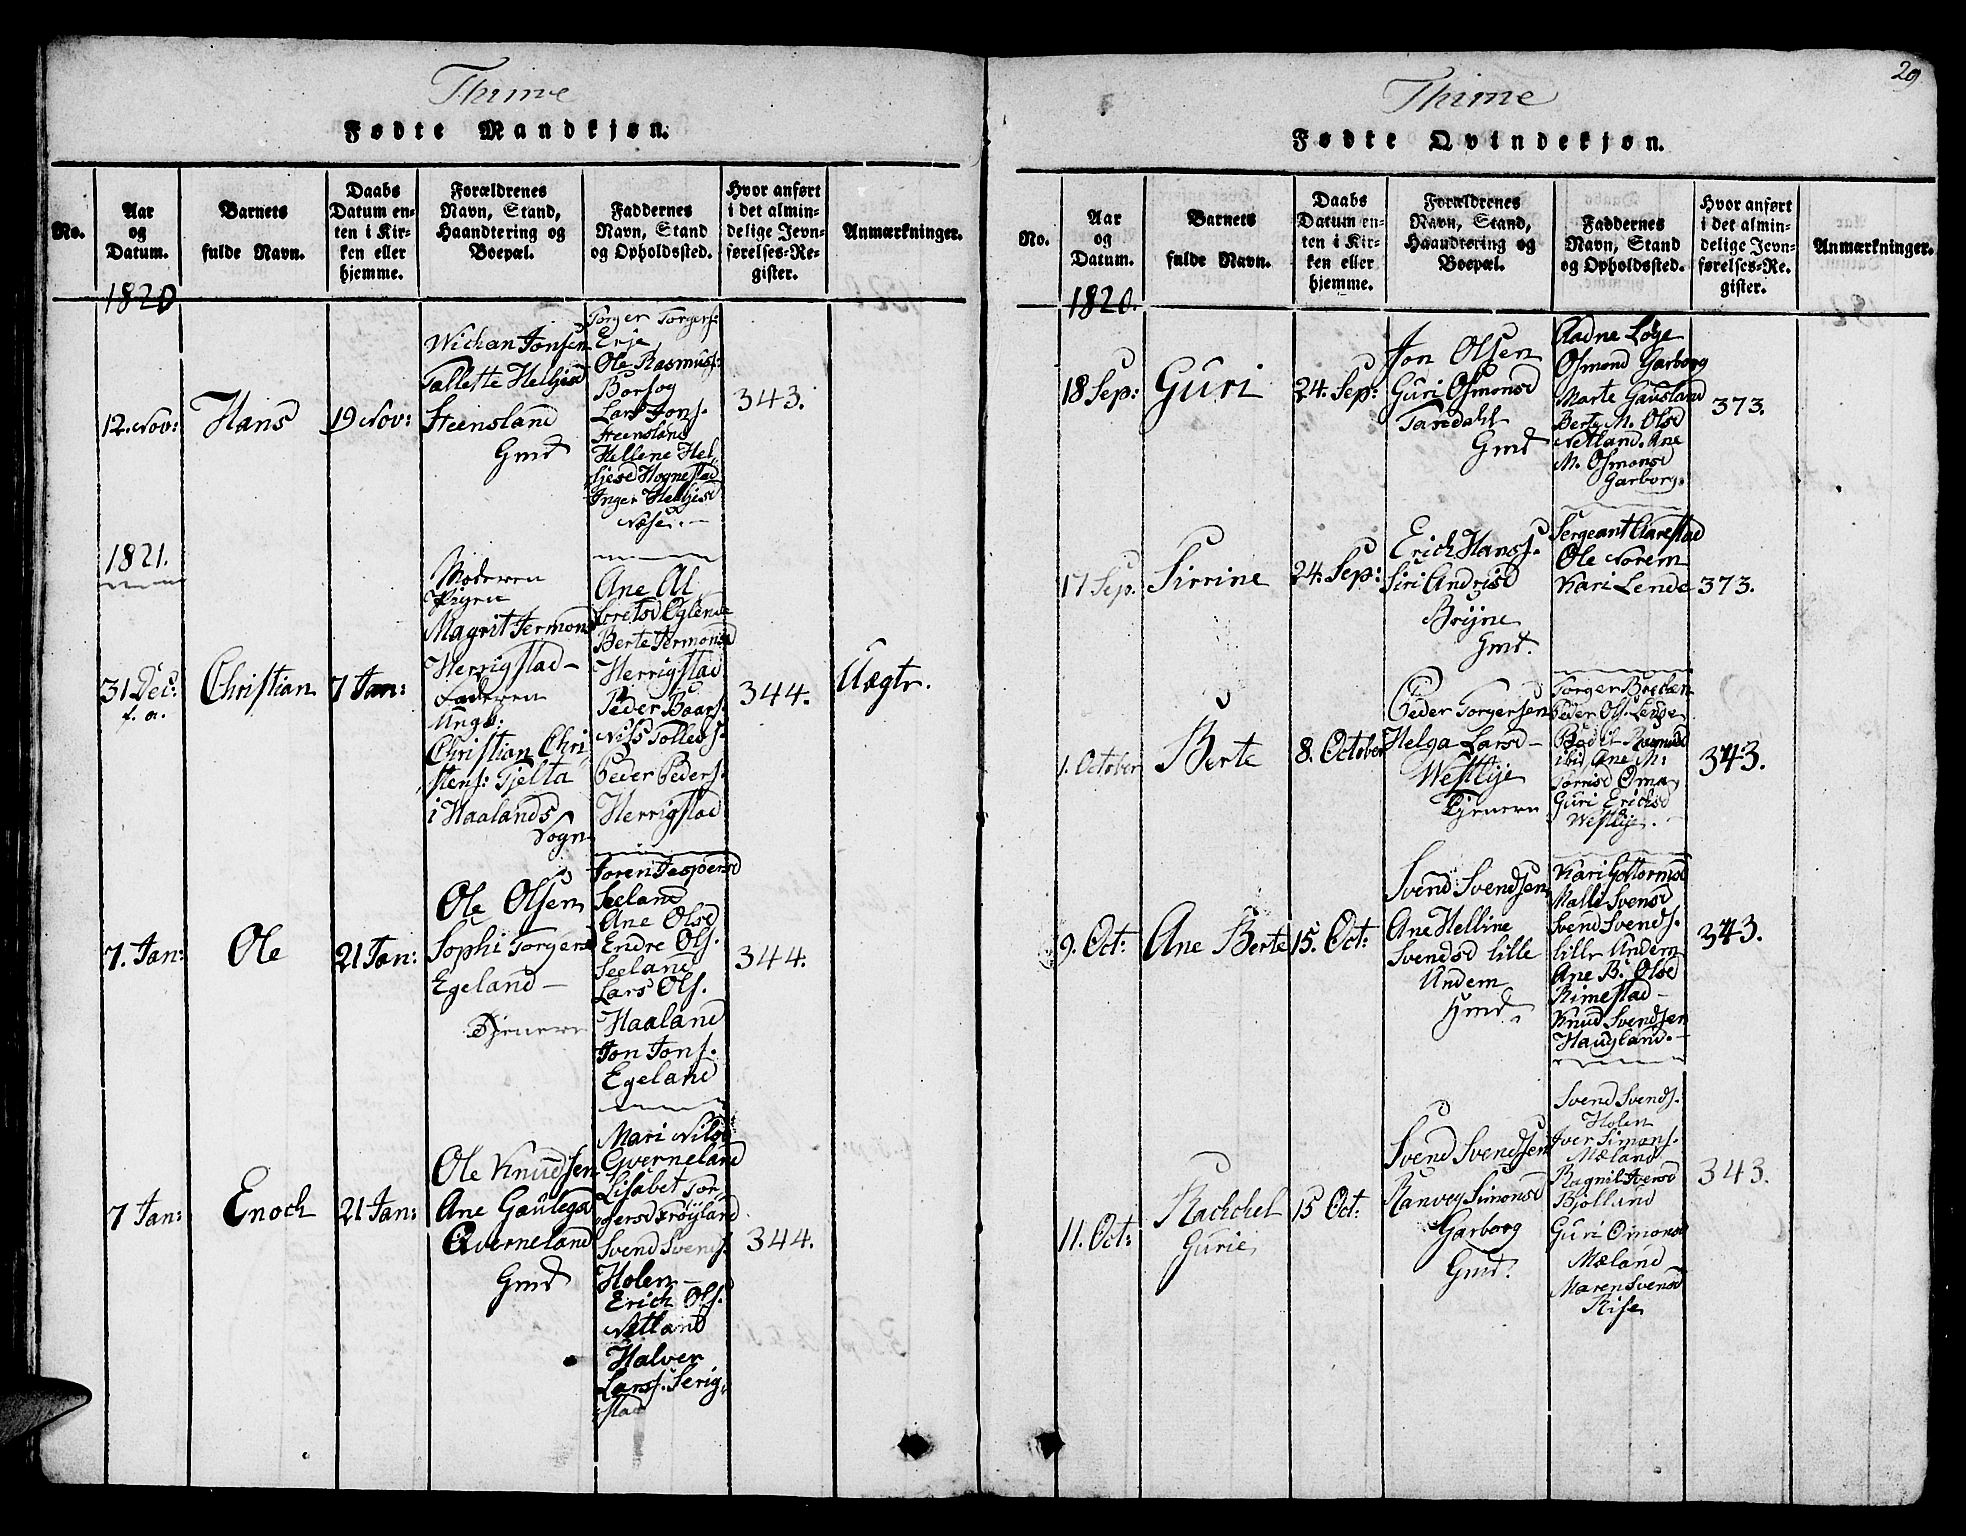 Thime
Fødte Mandkjøn.
No.
Aar
og
Datum.
Barnets
fulde Navn.
Daabs
Datum en-
ten i Kir-
ken eller
hjemme.
Forældrenes
Navn, Stand,
Haandtering og
Boepæl.
Faddernes
Navn, Stand
og Opholdssted.
Hvor anført
i det almin-
delige Jevn-
førelses-Re-
gister.
Anmærkninger.
1820
12. Nov:
Hans
19 Nov:
Wichan Jonsen
Tallette Heljesd
Steensland
Gmd
Torger Torgers:
Erje
Ole Rasmuss:
Lars Jons.
Steensland
Hellene Hel-
jesd Hognestad
Inger Heljesd
Næse.
343.
1821.
31 Dec:
f. a.
Christian
7 Jan:
Moderen
Pigen
Magrit Jermons
Herrigstad
Faderen
Ungk.
Christian Chri-
stens: Gjelta
i Haalands
Sogn
Ane Al
Berte Jermonsd
Herrigstad
Peder Boars.
Nils Tollevs.
Peder Peders.
Herrigstad
344.
Uægtr.
7. Jan:
Ole
21 Jan:
Ole Olsen
Sophi Torgersd
Egeland
Tjenere
Joren Jespersd
Seeland
Ane Olsd
Endre Ols.
Seeland
Lars Ols.
Haaland
Jon Jons.
Egeland
344.
7 Jan:
Enoch
21 Jan:
Ole Knudsen
Ane Gautesd
Qverneland
Gmd
Mari Nilsd
Qverneland
Lisabet Tor-
gersd Frøyland
Svend Svends.
Holen
Erich Ols.
Netland
Halver
Larss. Serig-
stad
344.
29
Thime
Fødte Qvindekjøn.
No.
Aar
og
Datum.
Barnets
fulde Navn.
Daabs
Datum en-
ten i Kir-
ken eller
hjemme.
Forældrenes
Navn, Stand,
Haandtering og
Boepæl.
Faddernes
Navn, Stand
og Opholdssted.
Hvor anført
i det almin-
delige Jevn-
førelses-Re-
gister.
Anmærkninger.
1820.
18 Sep:
Guri
24. Sep:
Jon Olsen
Guri Osmonsd
Tarldahl
Gmd
Aadne Løge
Osmond Garborg
Marte Gausland
Berte M. Olsd
Netland. Ane
M. Osmonsd
Garborg.
373.
17 Sep.
Sirrine
24. Sep:
Erich Hanss.
Siri Andrisd
Bryne
Gmd.
Sergeant Aarestad
Ole Norem
Kari Lende
373.
1. October
Berte
8. October
Peder Torgersen
Helga Larsd
Westlye
Tjenere
Peder Ols. Lende
ibid Ane M:
Guri Erichsd
Westlye.
343.
9. Oct:
Ane Berte
15. Oct:
Svend Svendsen
Ane Helline
Svendsd lille
Undem
Gmd.
Kari Gottormsd
Malli Svensd
Svend Svends.
lille Undem
Ane B. Olsd
Rimestad
Knud Svendsen
Haugland.
343.
11. Oct:
Rachhel
Gurie
15 Oct:
Svend Svendsen
Ranvey Simonsd
Garborg
Gmd.
Svend Svends.
Holen
Iver Simons.
Mæland
Ragnil Iversd
Bjolland
Guri Omonsd
Mæland
Maren Svensd
Rise
343.